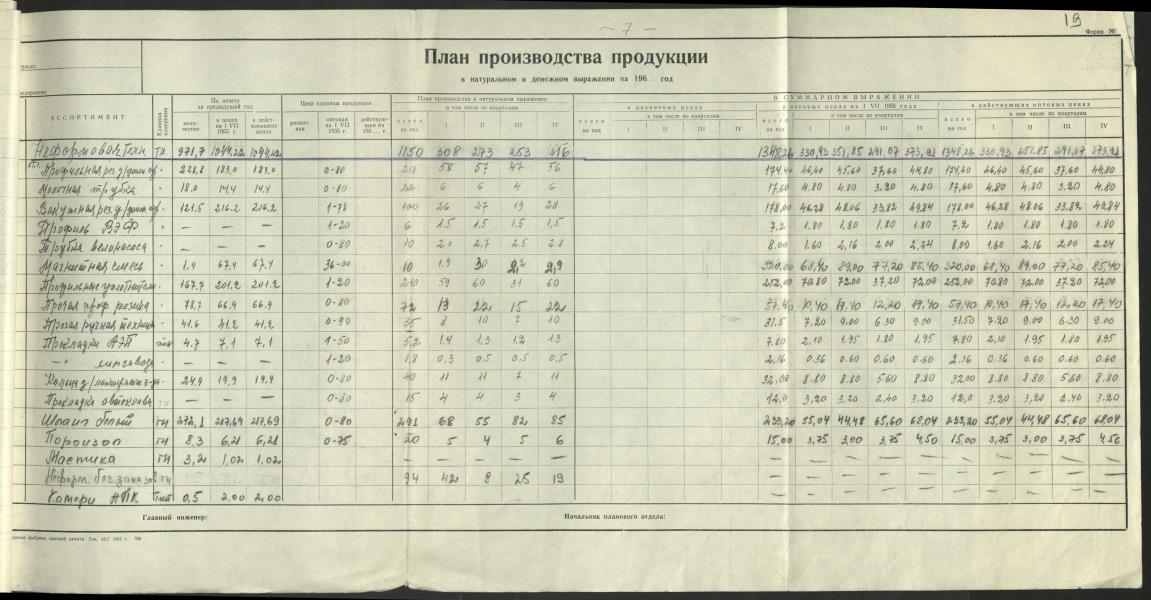 — 7 —
19
Форма №
План производства продукции
в натуральном и денежном выражении на 196 год
АССОРТИМЕНТ Единица измерения По отчету за предыдущий год Цена единицы продукции План производства в натуральном выражении В СУММАРНОМ ВЫРАЖЕНИИ
в розничных ценах в оптовых ценах на 1 VII 1955 года в действующих оптовых ценах
коли-чество в ценах на 1 VII 1955 г. в дейст-вовавших ценах розничная оптовая на 1 VII 1955 г. действую-щая на 196 г. всего на год в том числе по кварталам всего на год в том числе по кварталам всего на год в том числе по кварталам всего на год в том числе по кварталам
I II III IV I II III IV I II III IV I II III IV
тн. 971,7 1044,22 1044,22 1150 308 273 253 316 1348,26 330,93 351,85 291,07 373,91 1348,26 330,93 351,85 291,07 373,91
228,8 183,0 183,0 0-80 218 58 57 47 56 174,40 46,40 45,60 37,60 44,80 174,40 46,40 45,60 37,60 44,80
Молочная трубка 18.0 14,4 14,4 0-80 22 6 6 4 6 17,60 4.80 4.80 3.20 4.80 17,60 4.80 4.80 3.20 4.80
121,5 216.2 216,2 1-78 100 26 27 19 28 178,00 46,28 48.06 33,82 49,84 178.00 46,28 48.06 33,82 49,84
Профиль ВЭФ — — — 1-20 6 1.5 1.5 1.5 1,5 7,2 1.80 1.80 1.80 1.80 7,2 1.80 1.80 1.80 1.80
Трубка велонасоса — — — 0-80 10 2.0 2.7 2.5 2.8 8.00 1.60 2,16 2.00 2,24 8,00 1.60 2,16 2.00 2.24
Магнитная смесь 1,9 67,4 67,4 36-00 10 1.9 2,9 320,00 68,40 89,00 77,20 85,40 320,00 68,40 89.00 77,20 85,40
Профильные уплотнители 167,7 201,2 201,2 1-20 210 59 60 31 60 252,00 70,80 72,00 37,20 72,00 252,00 70,80 72.00 37,20 72,00
Прочая проф. резина 78,7 66,9 66,9 0-80 72 13 22 15 22 57,40 10,40 17,40 12,20 17,40 57,40 10,40 17,40 12,20 17,40
41.6 41,2 41,2 0-90 35 8 10 7 10 31.5 7.20 9.00 6.30 9.00 31,50 7.20 9.00 6.30 9.00
Прокладки 4.7 7.1 7,1 1-50 5,2 1.4 1.3 1.2 1.3 7.80 2.10 1.95 1.80 1.95 7.80 2.10 1.95 1.80 1.95
—"— — — — 1-20 1,8 0.3 0.5 0.5 0.5 2.16 0.36 0.60 0.60 0.60 2.16 0.36 0.60 0.60 0.60
24,9 19,9 19,9 0-80 40 11 11 7 11 32,00 8.80 8.80 5.60 8.80 32,00 8.80 8.80 5,60 8.80
Прокладка — — — 0-80 15 4 4 3 4 12,0 3,20 3,20 2,40 3,20 12,0 3,20 3,20 2,40 3,20
тн 272,1 217,69 217,69 0-80 291 68 55 82 85 233,20 55,04 44,48 65,60 68,04 233,20 55,04 44,48 65,60 68,04
Пороизол тн 8,3 6,21 6,21 0-75 20 5 4 5 6 15,00 3,75 3,00 3,75 4,50 15,00 3,75 3,00 3,75 4,50
Мастика тн 3,2 1,02 1,02 — — — — — — — — — — — — — — —
94 42 8 25 19 — — — — — — — — — —
0,5 2.00 2,00 — — — — — — — — — —
Главный инженер: Начальник планового отдела: